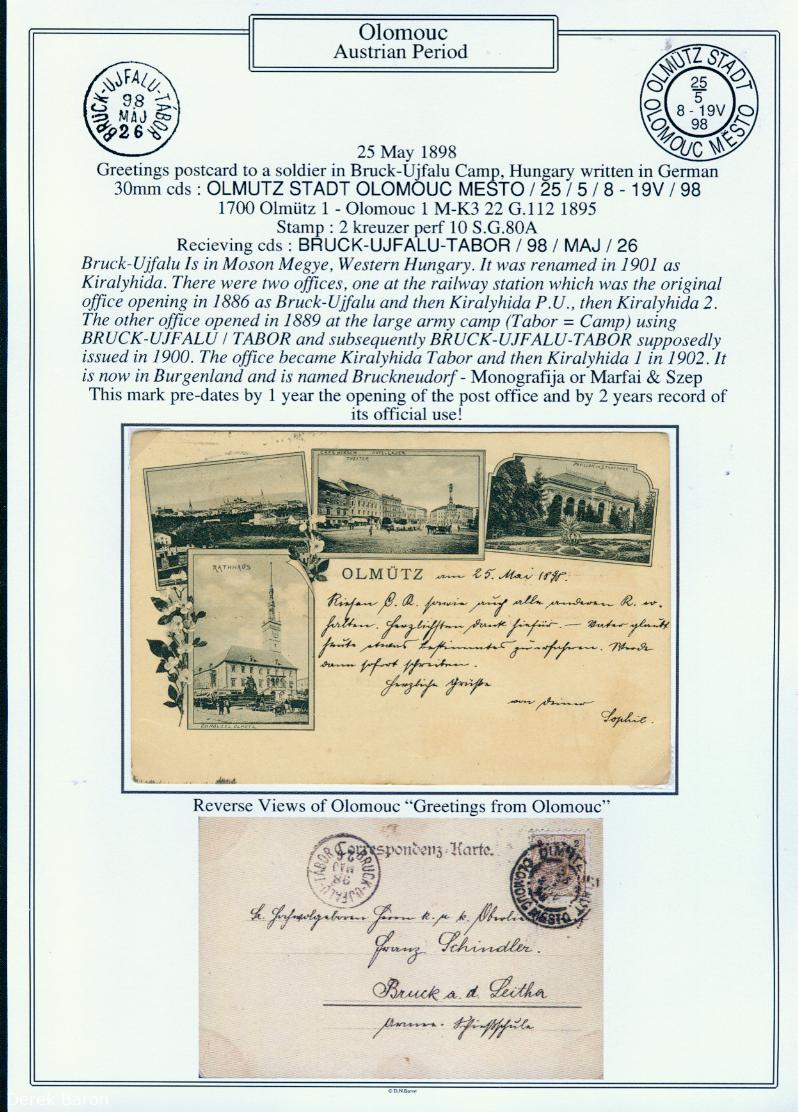 Olomouc
Austrian Period
BRUCK-UJFALU-TÁBOR
98
MAJ
26
OLMÜTZ STADT
25
5
8 - 19V
98
OLOMOUC MĚSTO
25 May 1898
Greetings postcard to a soldier in Bruck-Ujfalu Camp, Hungary written in German
30mm cds : OLMUTZ STADT OLOMOUC MESTO / 25 / 5 / 8 - 19V / 98
1700 Olmütz 1 - Olomouc 1 M-K3 22 G.112 1895
Stamp : 2 kreuzer perf 10 S.G.80A
Recieving cds : BRUCK-UJFALU-TABOR / 98 / MAJ / 26
Bruck-Ujfalu Is in Moson Megye, Western Hungary. It was renamed in 1901 as
Kiralyhida. There were two offices, one at the railway station which was the original
office opening in 1886 as Bruck-Ujfalu and then Kiralyhida P.U., then Kiralyhida 2.
The other office opened in 1889 at the large army camp (Tabor = Camp) using
BRUCK-UJFALU / TABOR and subsequently BRUCK-UJFALU-TABOR supposedly
issued in 1900. The office became Kiralyhida Tabor and then Kiralyhida 1 in 1902. It
is now in Burgenland and is named Bruckneudorf - Monografija or Marfai & Szep
This mark pre-dates by 1 year the opening of the post office and by 2 years record of
its official use!
THEATER
RATHHAUS
OLMÜTZ am 25. Mai 1898.
sowie auch alle anderen K. er-
halten. Herzlichsten Dank hiefür. — Vater glaubt
heute etwas Bestimmtes zu erfahren. Werde
dann sofort schreiben.
Herzliche Grüße
von Deiner
Sophie.
Reverse Views of Olomouc “Greetings from Olomouc”
Correspondenz-Karte.
BRUCK-UJFALU-TÁBOR
98
MAJ
26
OLMÜTZ STADT
OLOMOUC MĚSTO
Sr. Hochwolgeboren Herrn k. u. k.
Franz Schindler.
Bruck a. d. Leitha
Armee-Schießschule
© D.N.Baron
Derek Baron